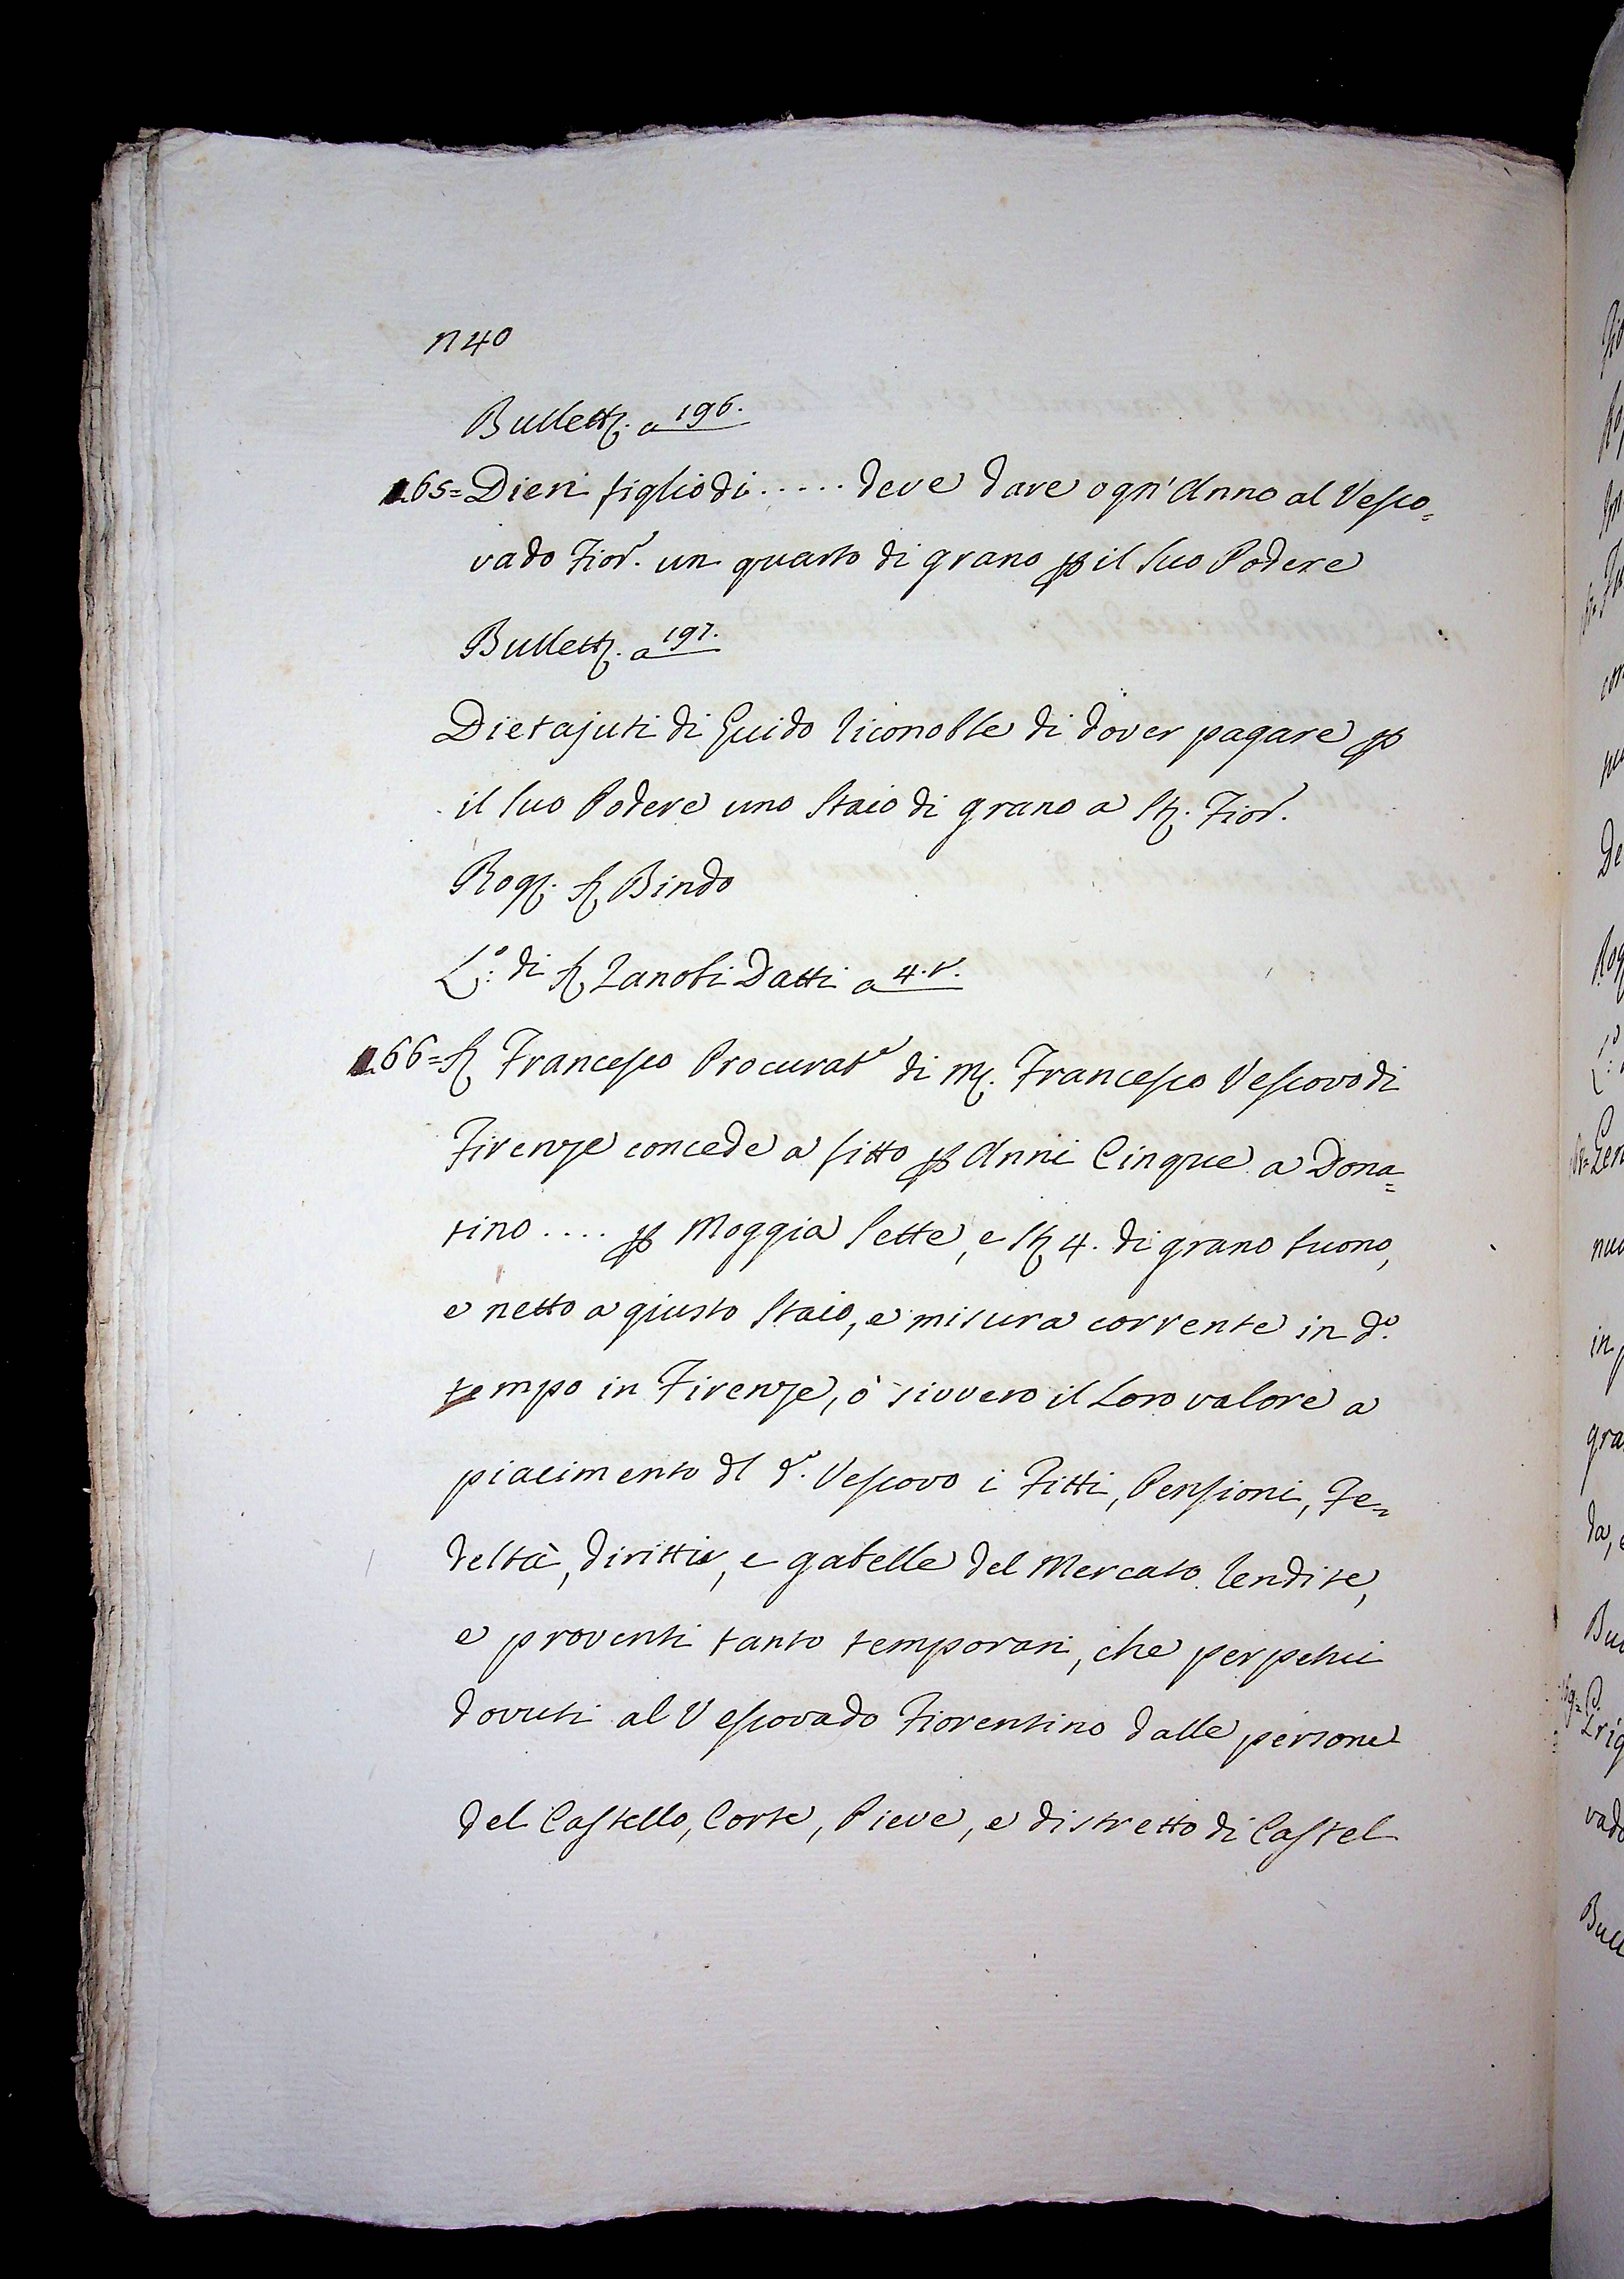 n 40
Bullett. a 196.
165= Dieri figlio di ..... deve dare ogn'Anno al Vesco=
vado Fior. un quarto di grano p il suo Podere
Bullett. a 197.
Dietajuti di Guido riconobbe di dover pagare p
il suo Podere uno Staio di grano a St. Fior.
Rog. S. Bindo
L.º di S. Zanobi Datti a 4.v.
166= S. Francesco Procurat.e di M. Francesco Vescovo di
Firenze concede a fitto p Anni Cinque a Dona=
tino .... p Moggia Sette, e St. 4. di grano buono,
e netto a giusto Staio, e misura corrente in d.º
tempo in Firenze, ò sivvero il Loro valore a
piacimento dl d.º Vescovo i Fitti, Pensioni, Fe=
deltà, diritti, e gabelle del Mercato, rendite,
e proventi tanto temporari, che perpetui
dovuti al Vescovado Fiorentino dalle persone
del Castello, Corte, Pieve, e distretto di Castel